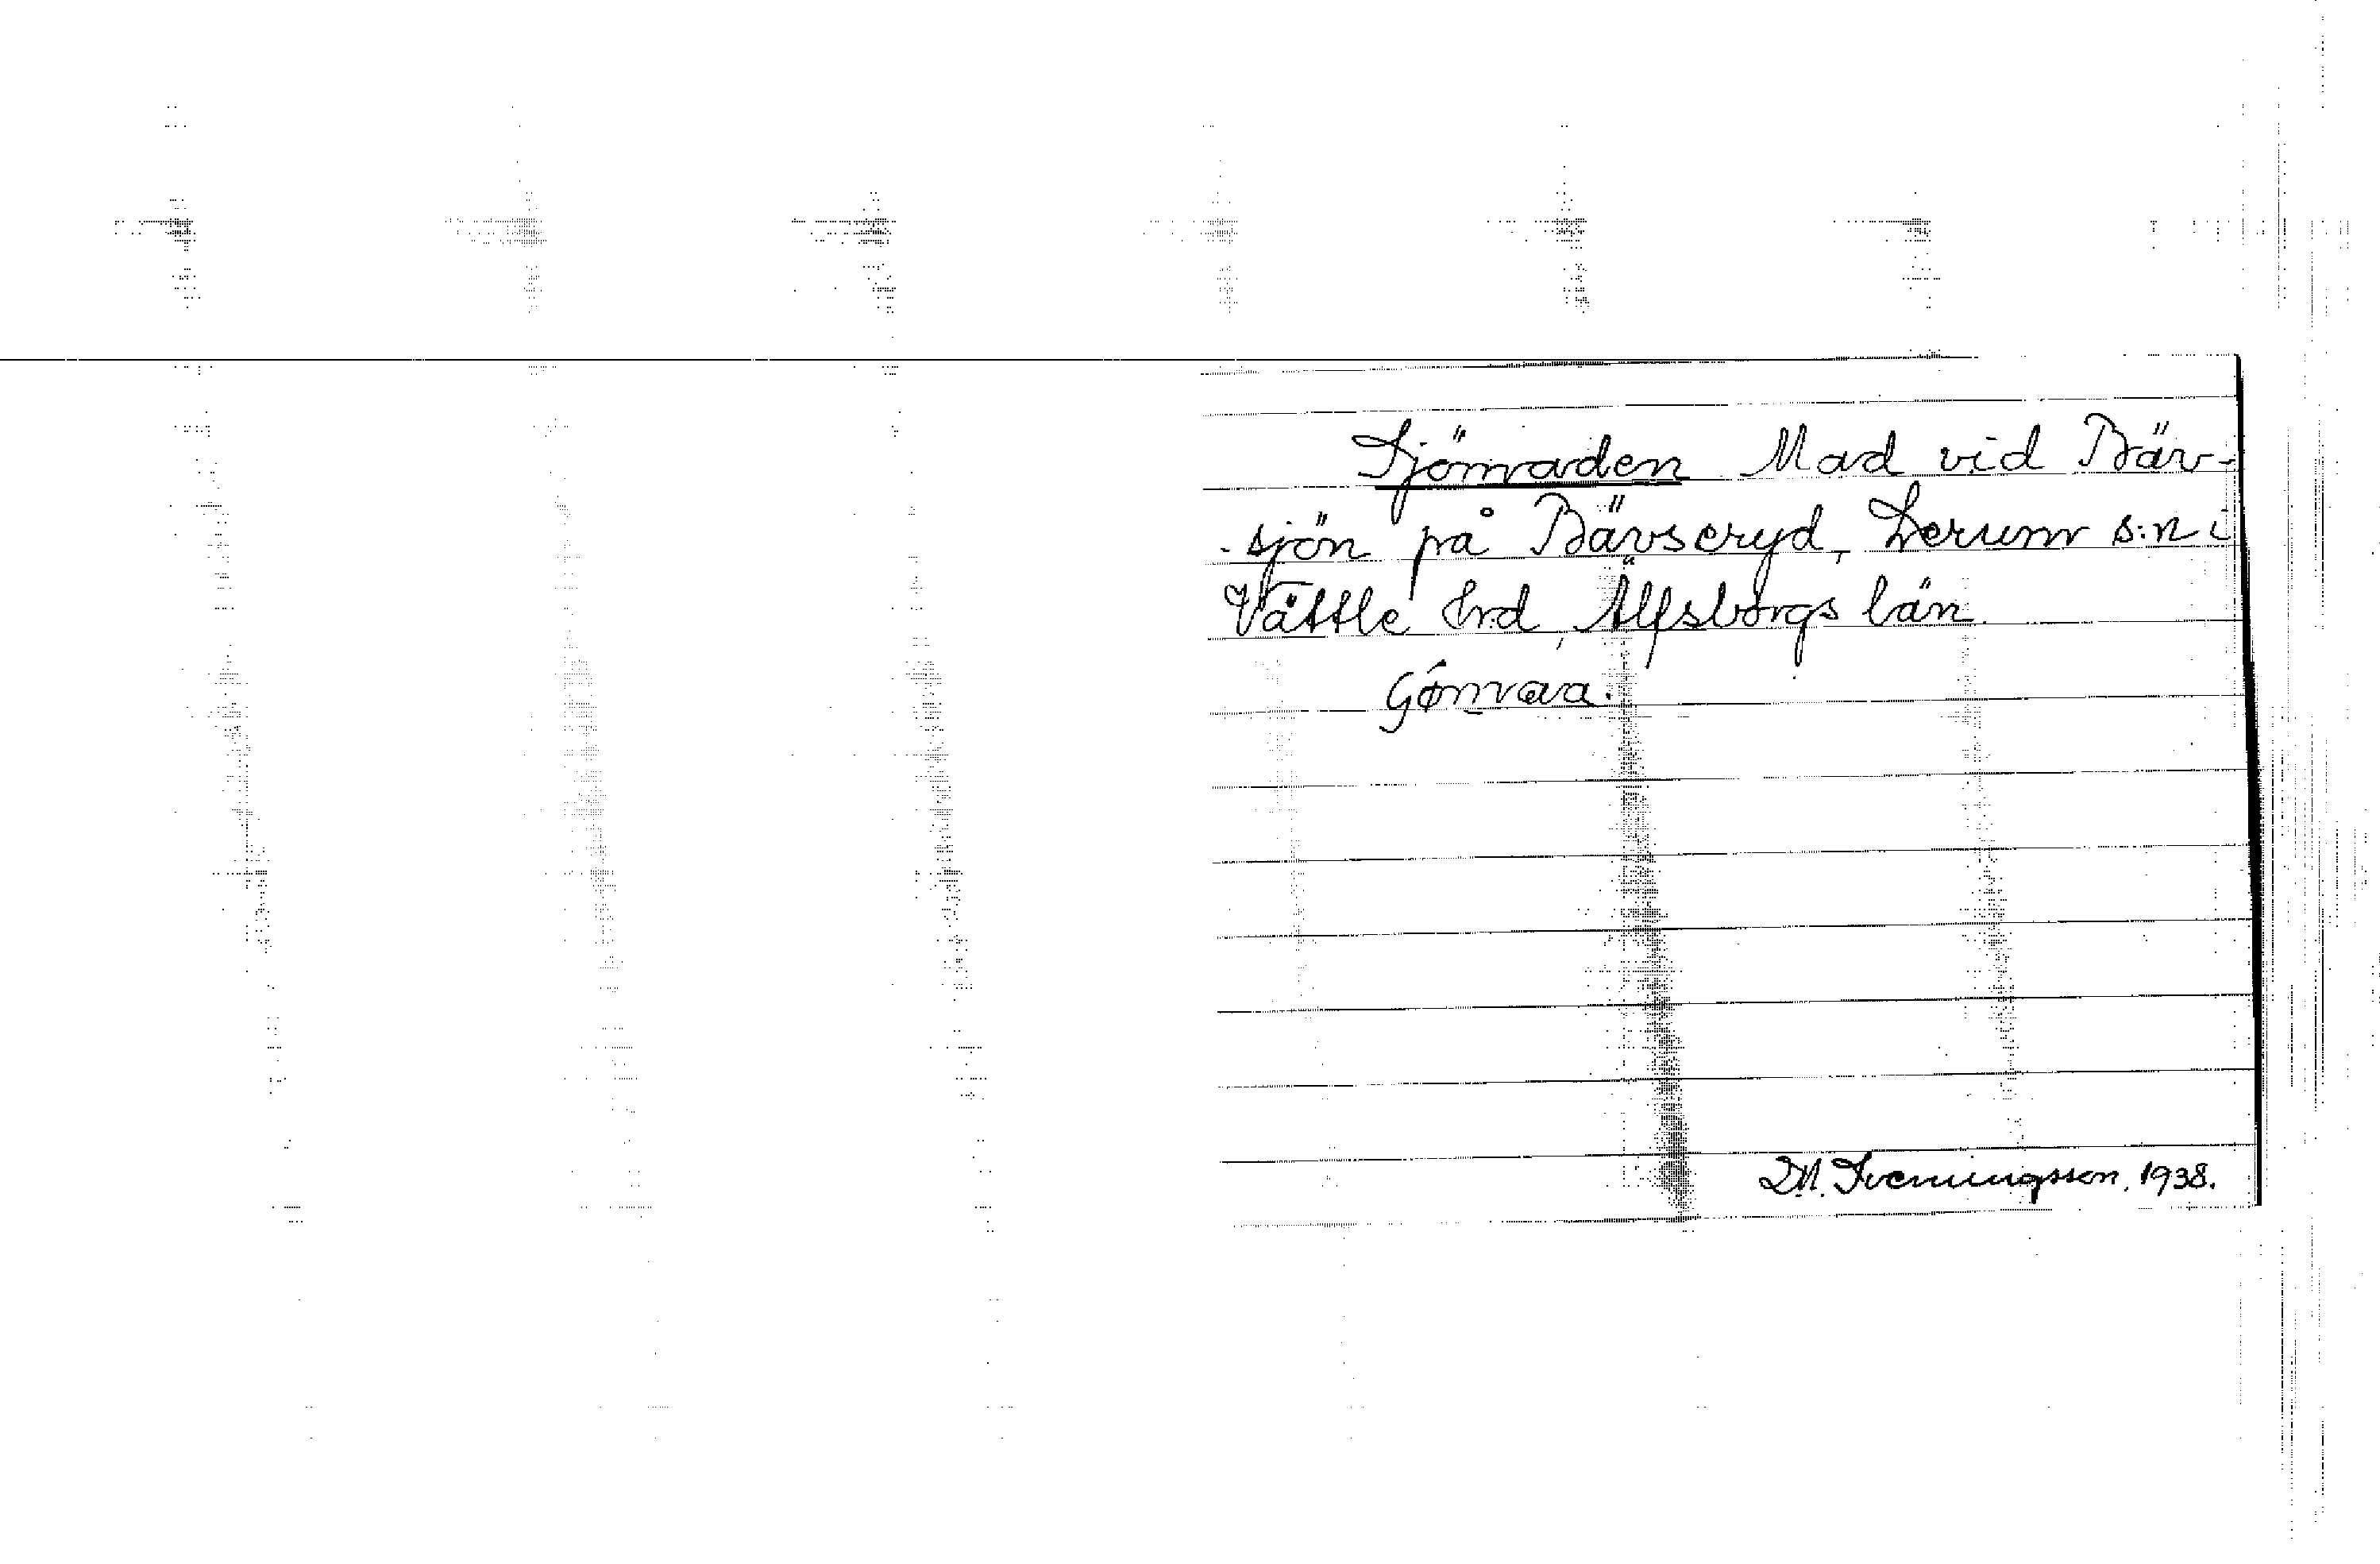 Sjömaden Mad vid Bäv-
-sjön på Bävseryd, Lerum s:n i
Vättle hrd, Älfsborgs län.
D.N. Svenningsson, 1938.